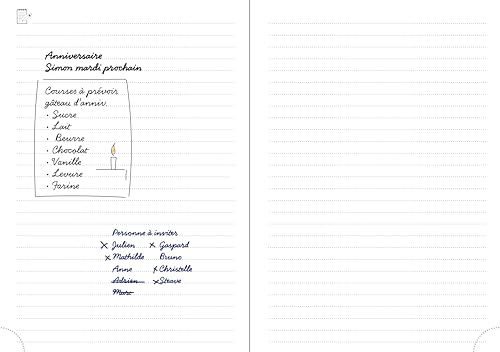 Anniversaire
Simon mardi prochain
Courses à prévoir
gâteau d'anniv.
• Sucre
• Lait
• Beurre
• Chocolat
• Vanille
• Levure
• Farine
Personne à inviter
x Julien x Gaspard
x Mathilde Bruno
Anne x Christelle
Adrien x Steave
Marc